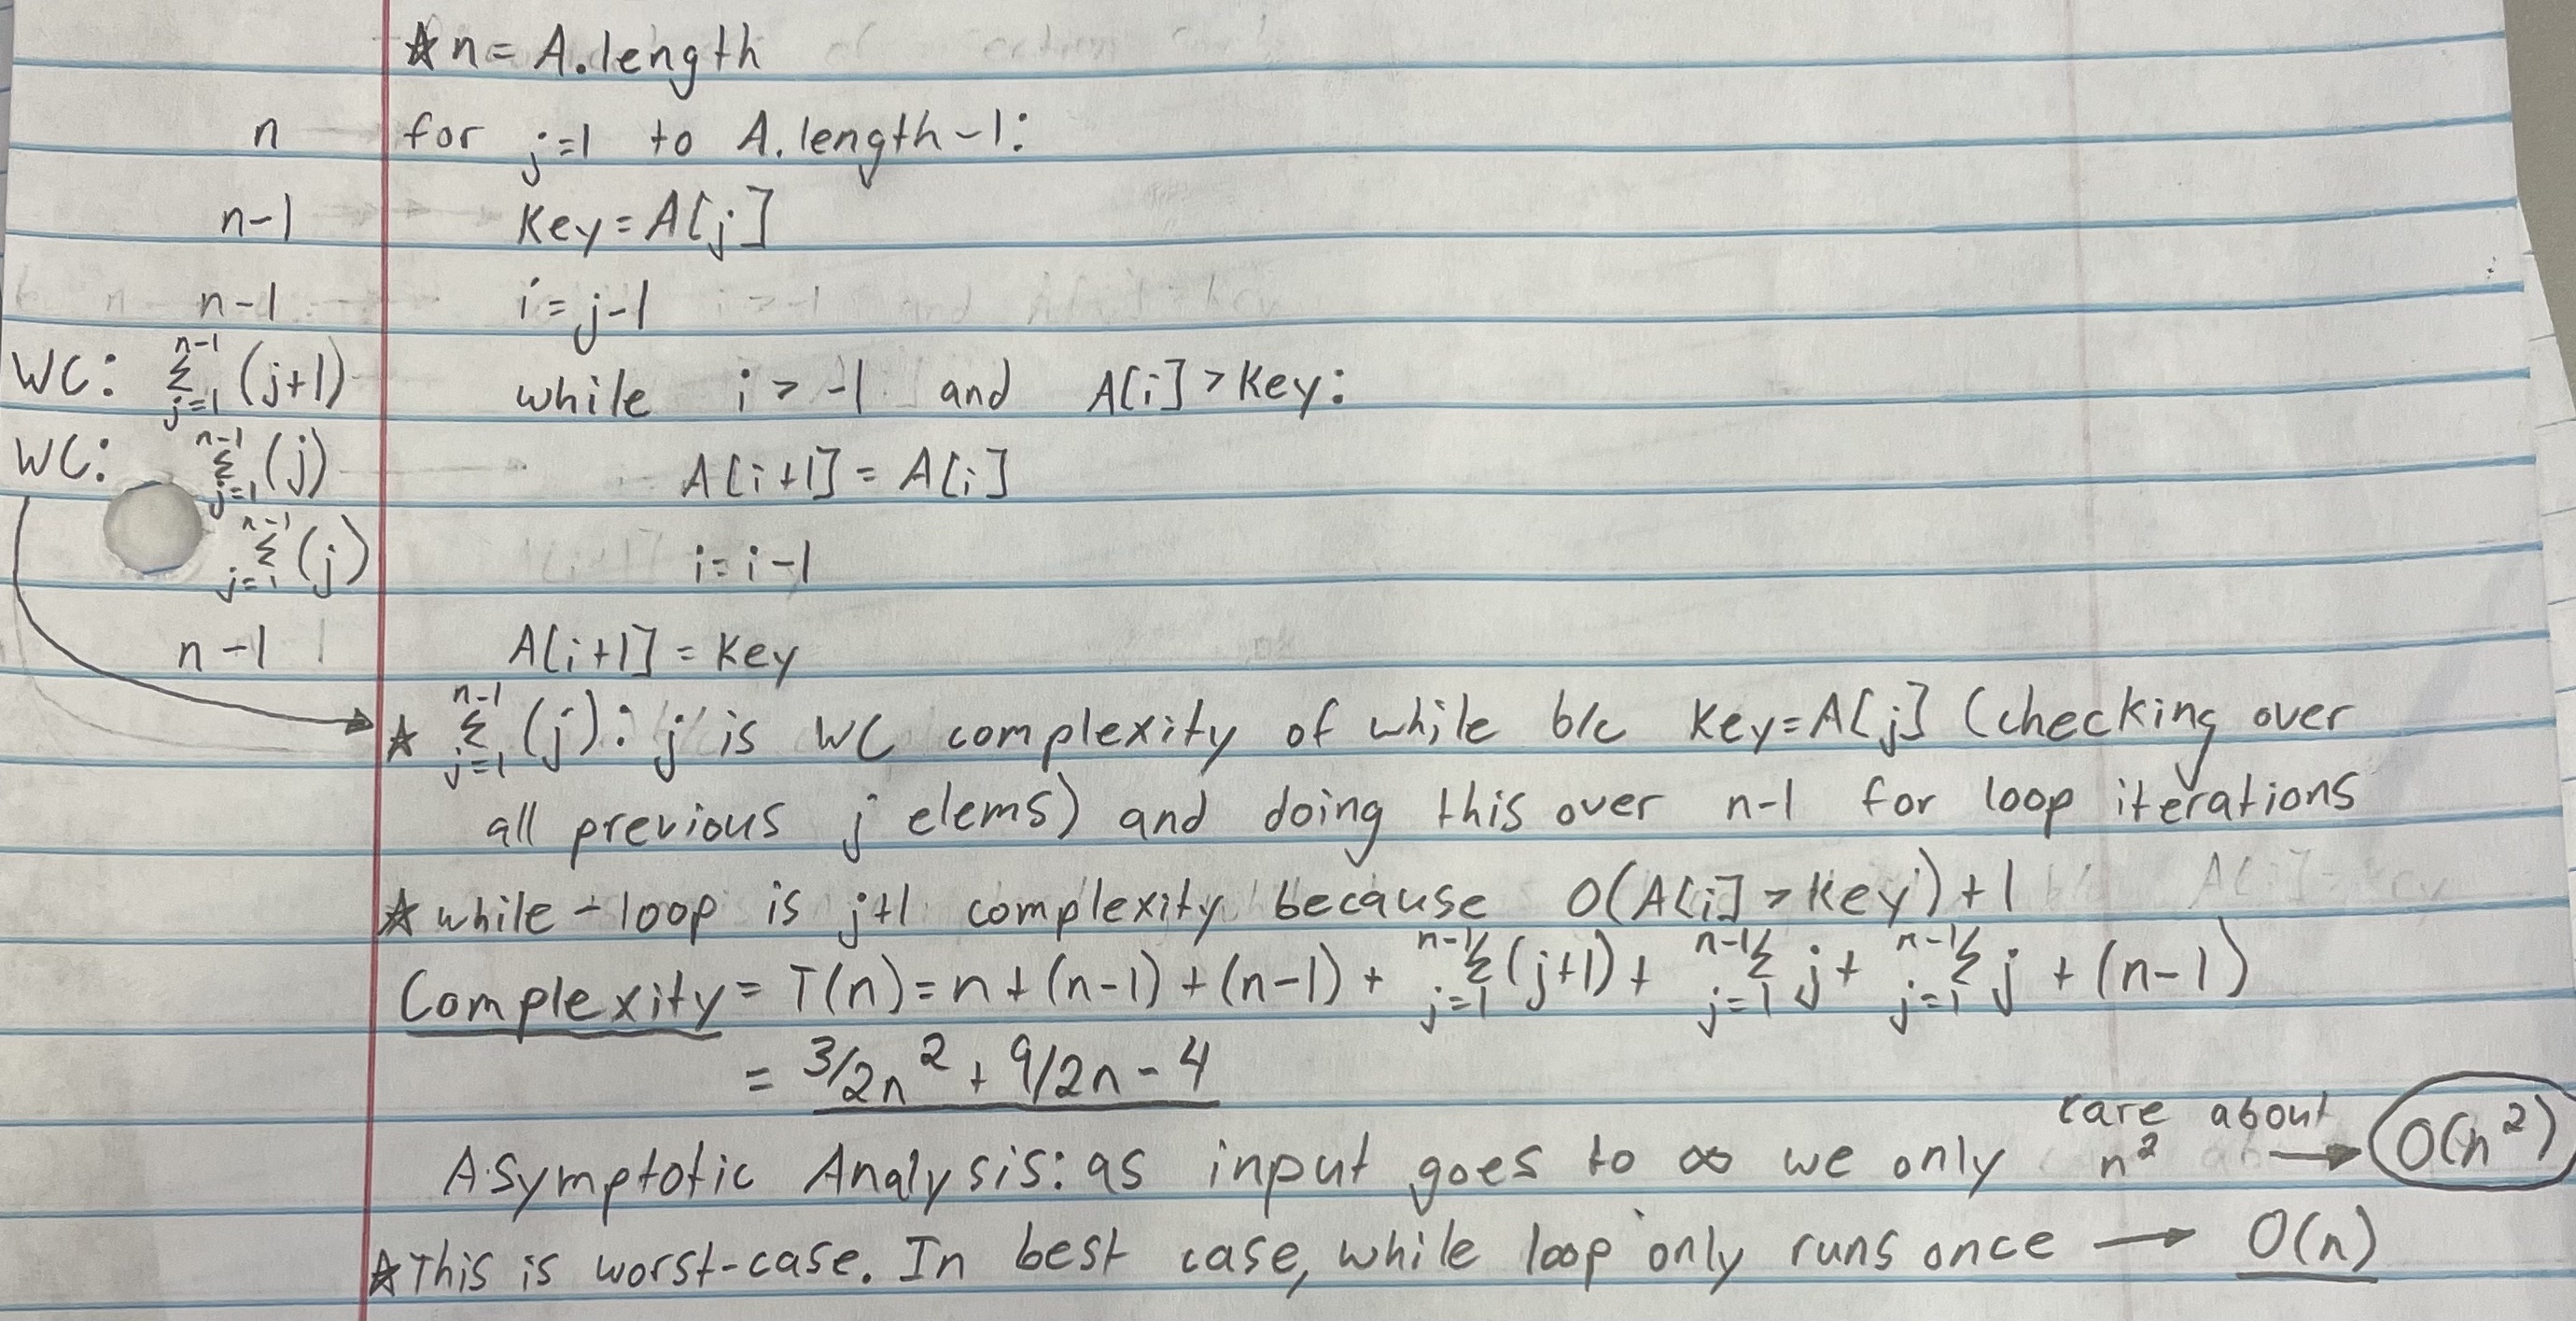 ☆ n = A.length
n for j=1 to A.length-1:
n-1 Key = A[j]
n-1 i = j-1
WC: n-1 Σ j=1 (j+1) while i > -1 and A[i] > Key:
WC: n-1 Σ j=1 (j) A[i+1] = A[i]
n-1 Σ j=1 (j) i = i-1
n-1 A[i+1] = Key
☆ n-1 Σ j=1 (j): j is WC complexity of while b/c Key=A[j] (checking over
all previous j elems) and doing this over n-1 for loop iterations
☆ while-loop is j+1 complexity because O(A[i] > Key) + 1
Complexity = T(n) = n + (n-1) + (n-1) + n-1 Σ j=1 (j+1) + n-1 Σ j=1 j + n-1 Σ j=1 j + (n-1)
= 3/2n² + 9/2n - 4
Asymptotic Analysis: as input goes to ∞ we only care about n² → O(n²)
☆ This is worst-case. In best case, while loop only runs once → O(n)